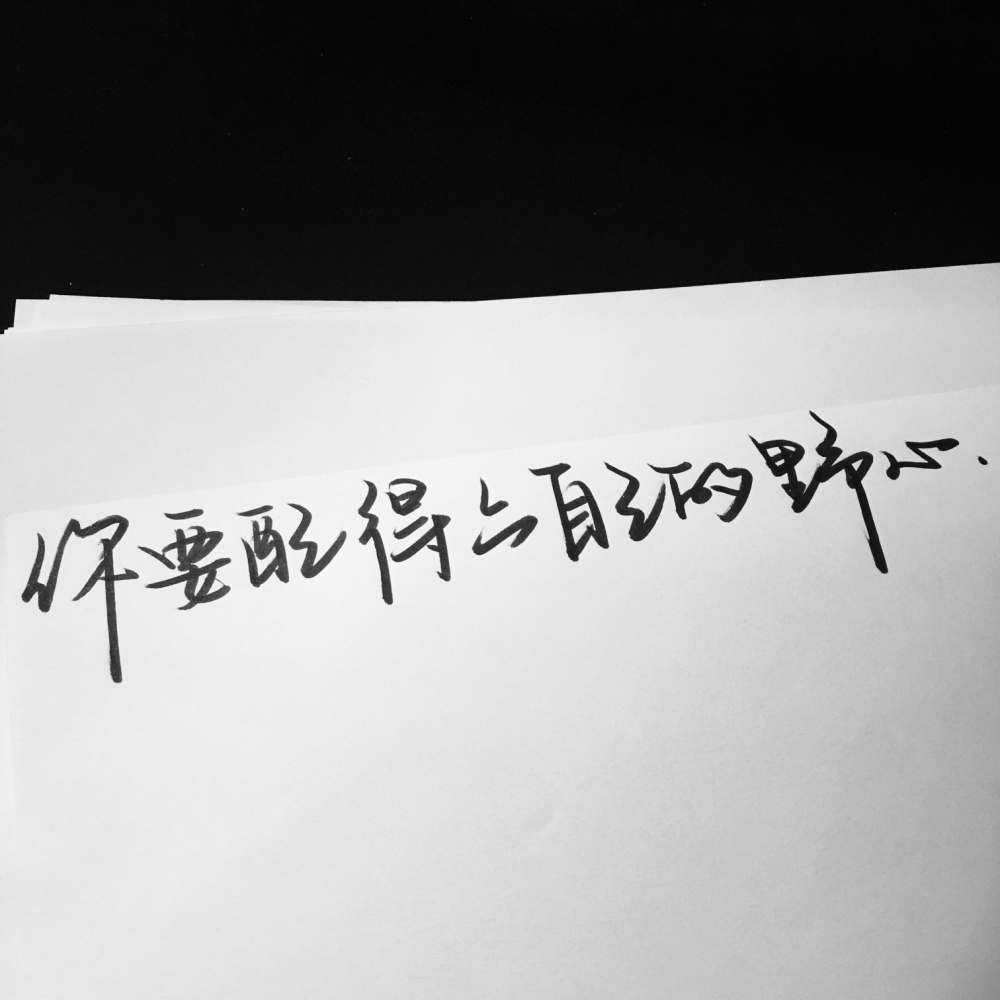 你要配得上自己的野心.